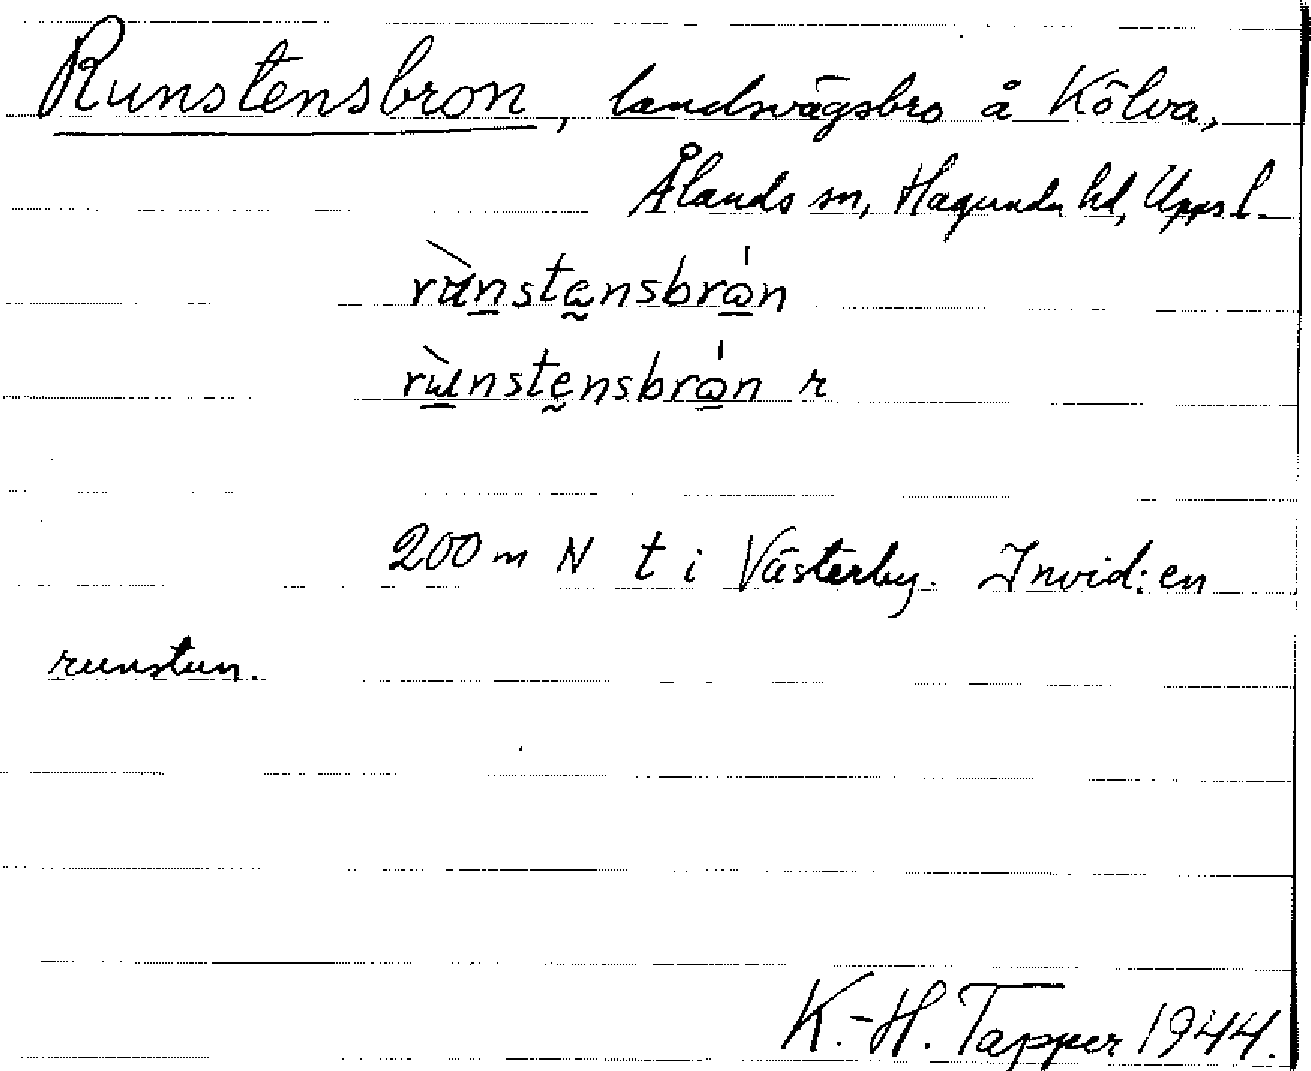 Runstensbron, landsvägsbro å Kölva,
Ålands sn, Hagunda hd, Uppsl.
rùnstensbrón
rùnstensbrón r
200 m N t i Västerby. Invid: en
runsten.
K.-H. Tapper 1944.